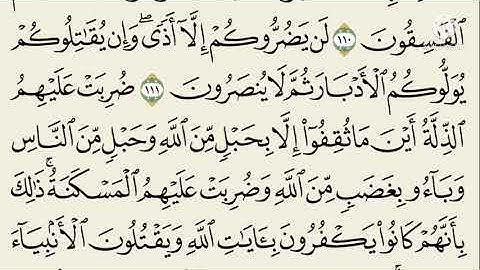 ٱلۡفَٰسِقُونَ ١١٠ لَن يَضُرُّوكُمۡ إِلَّآ أَذٗىۖ وَإِن يُقَٰتِلُوكُمۡ
يُوَلُّوكُمُ ٱلۡأَدۡبَارَ ثُمَّ لَا يُنصَرُونَ ١١١ ضُرِبَتۡ عَلَيۡهِمُ
ٱلذِّلَّةُ أَيۡنَ مَا ثُقِفُوٓاْ إِلَّا بِحَبۡلٖ مِّنَ ٱللَّهِ وَحَبۡلٖ مِّنَ ٱلنَّاسِ
وَبَآءُو بِغَضَبٖ مِّنَ ٱللَّهِ وَضُرِبَتۡ عَلَيۡهِمُ ٱلۡمَسۡكَنَةُۚ ذَٰلِكَ
بِأَنَّهُمۡ كَانُواْ يَكۡفُرُونَ بِـَٔايَٰتِ ٱللَّهِ وَيَقۡتُلُونَ ٱلۡأَنۢبِيَآءَ